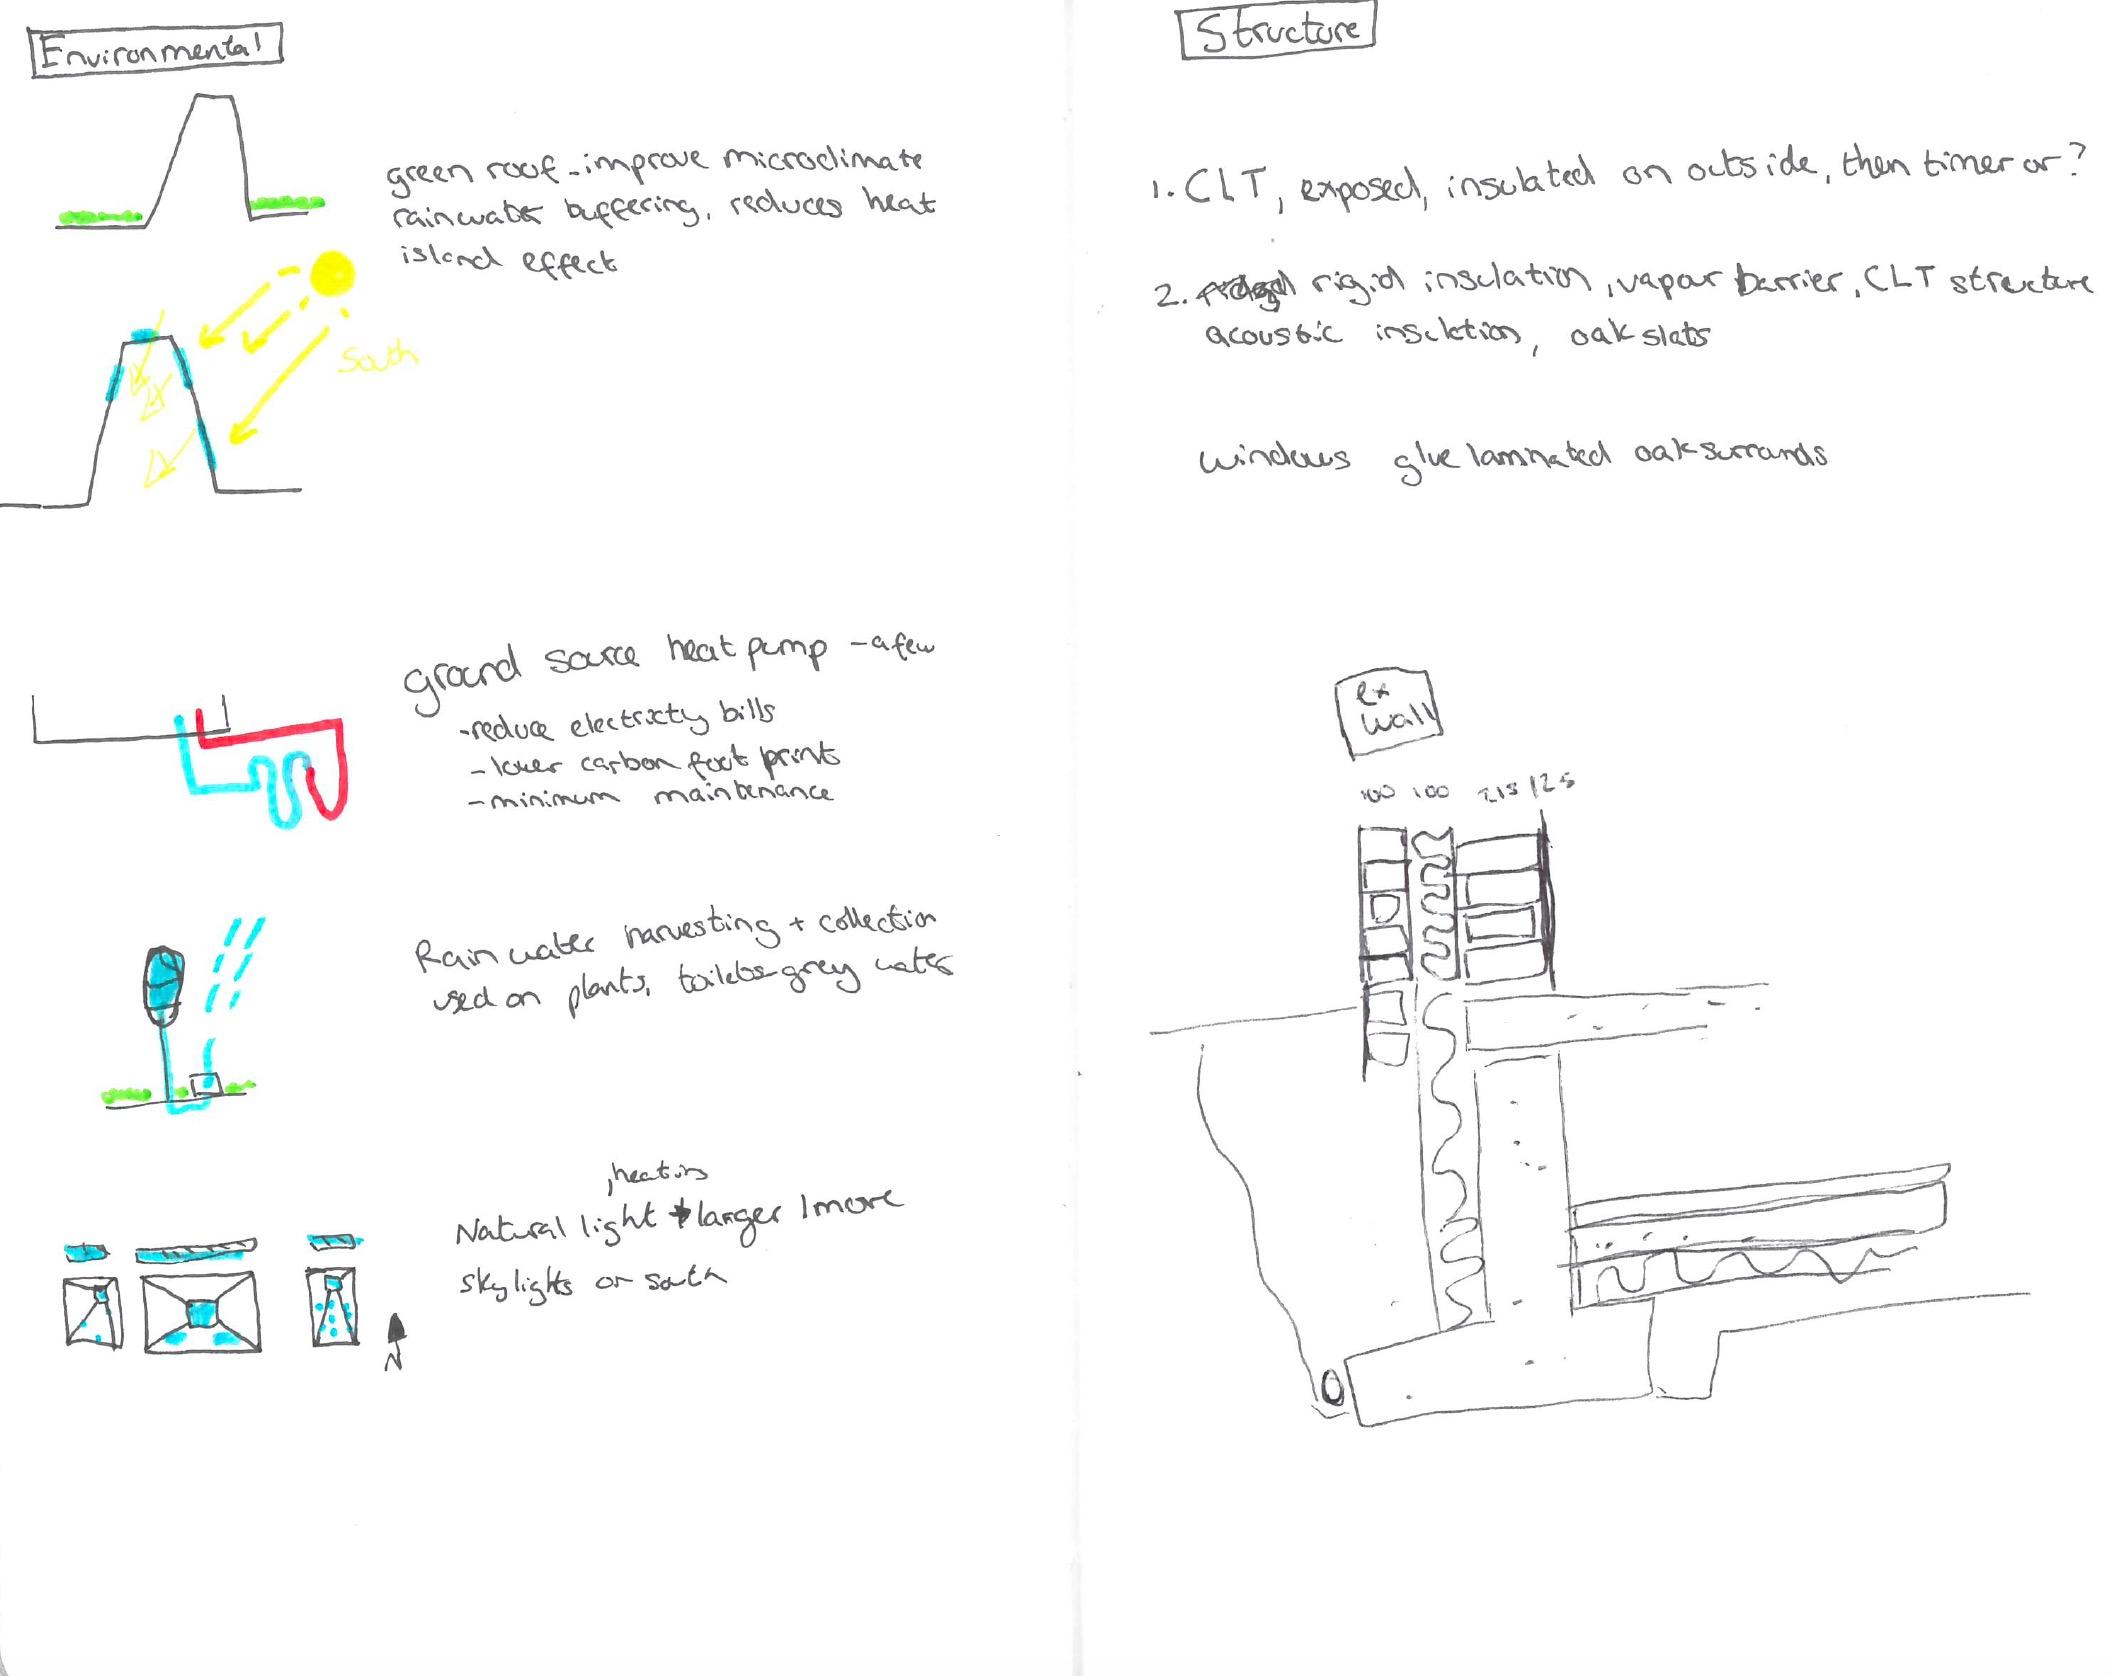 Environmental
green roof - improve microclimate
rainwater buffering, reduces heat
island effect
South
ground source heat pump - a few
- reduce electricty bills
- lower carbon foot print
- minimum maintenance
Rain water harvesting + collection
used on plants, toilets - grey water
, heating
Natural light + larger / more
skylights on south
N
Structure
1. CLT, exposed, insulated on outside, then timer or?
2. rigid insulation, vapour barrier, CLT structure
acoustic insulation, oak slats
windows glue laminated oak surrounds
ex
wall
100 100 215 12.5